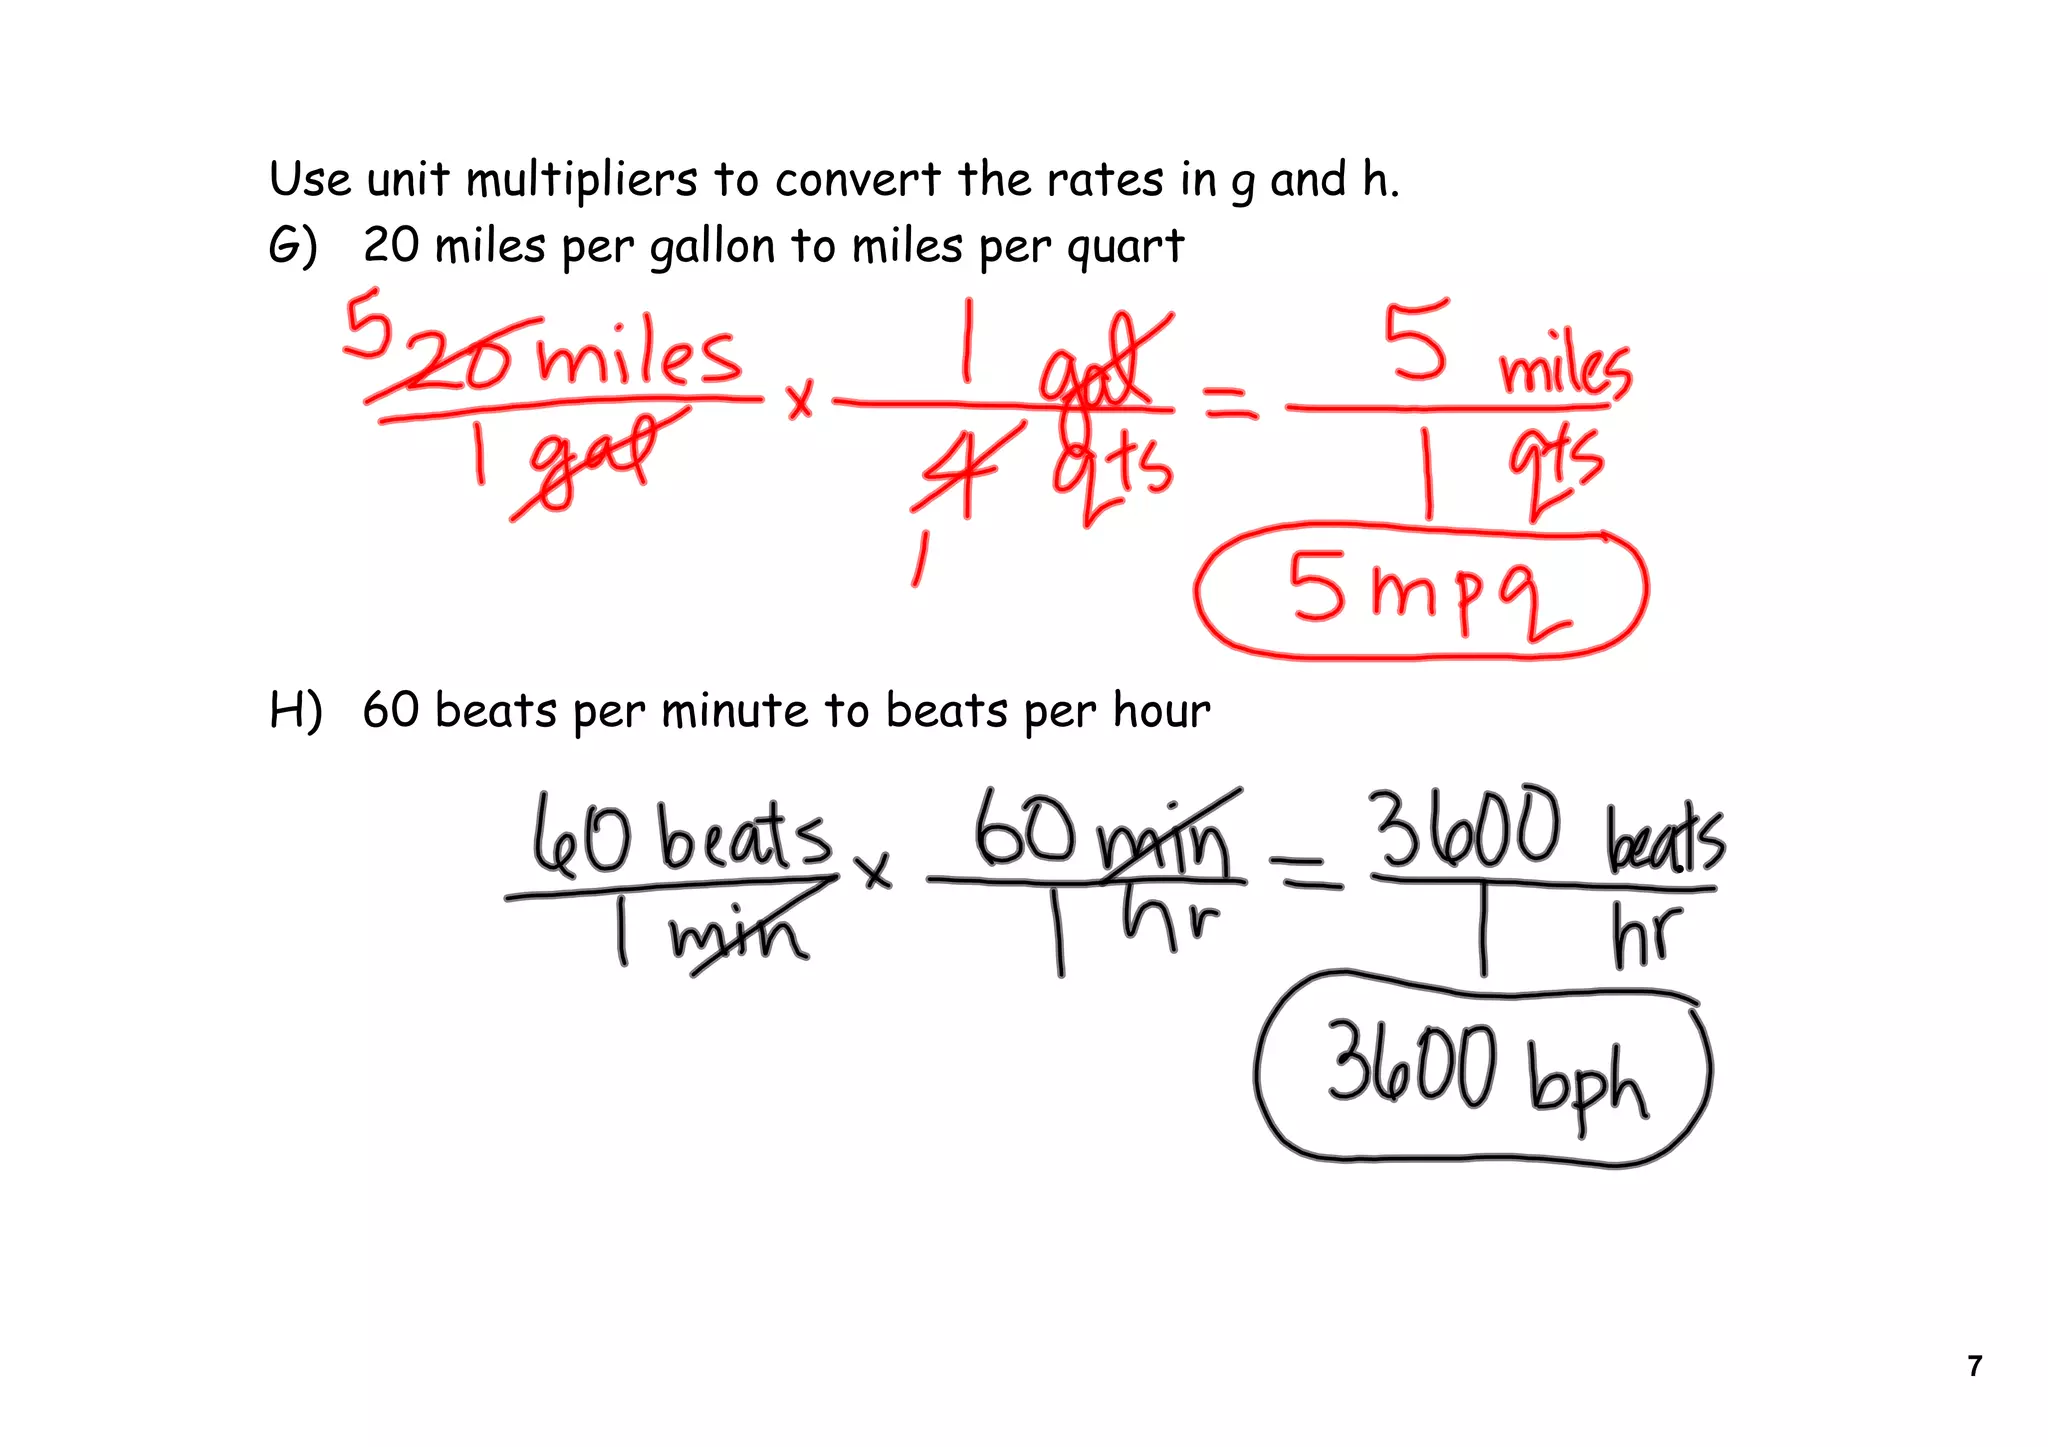 Use unit multipliers to convert the rates in g and h.
G) 20 miles per gallon to miles per quart
5 20 miles / 1 gal × 1 gal / 4 qts = 5 miles / 1 qts
1
5 mpq
H) 60 beats per minute to beats per hour
60 beats / 1 min × 60 min / 1 hr = 3600 beats / 1 hr
3600 bph
7